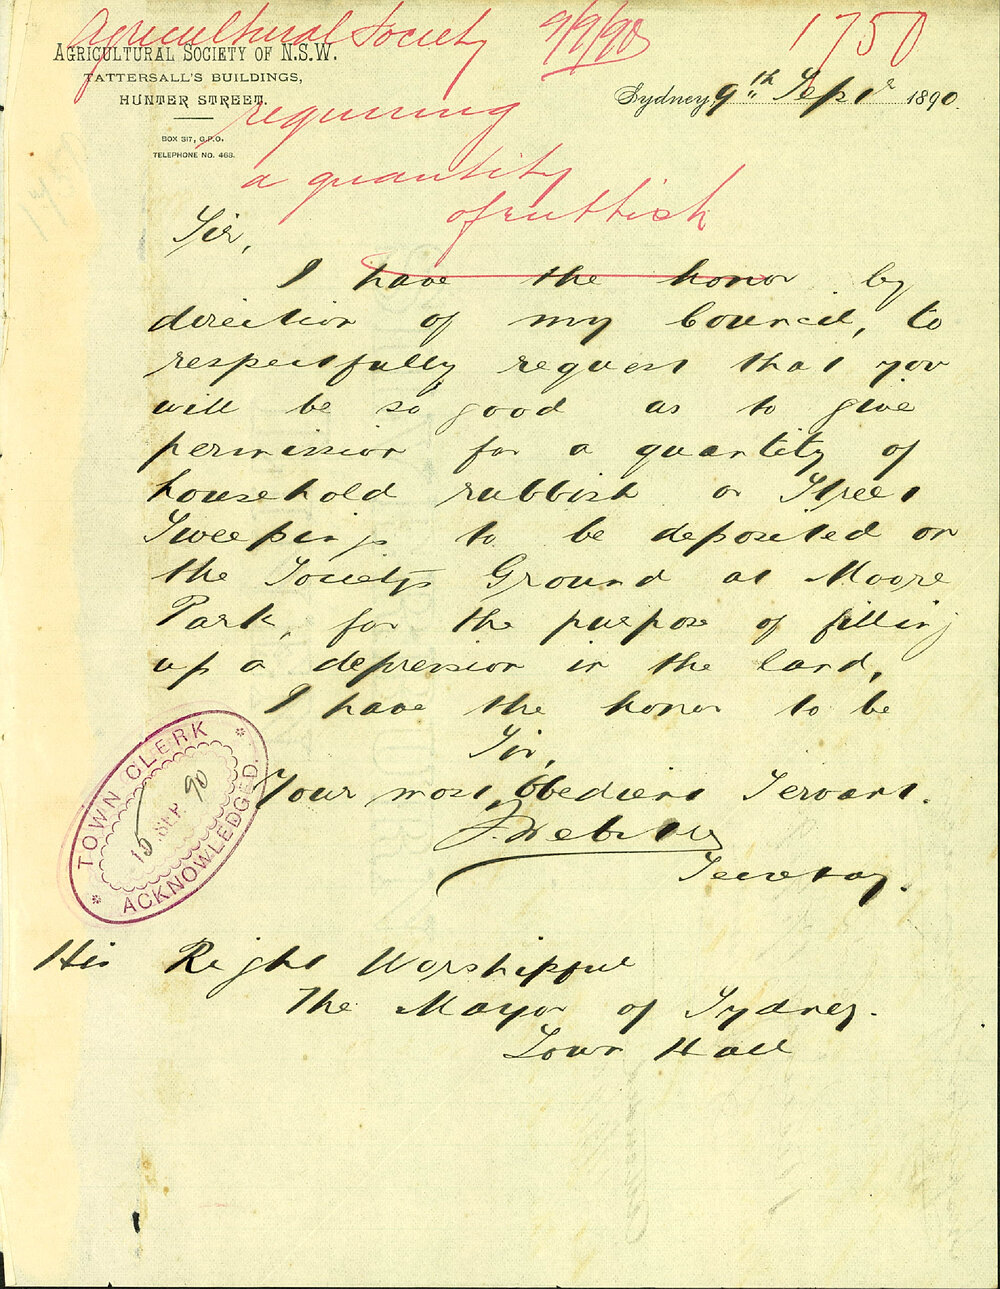 Agricultural Society 9/9/90 1750
AGRICULTURAL SOCIETY OF N.S.W.
TATTERSALL'S BUILDINGS,
HUNTER STREET.
BOX 317, G.P.O.
TELEPHONE NO. 463.
Sydney, 9th Sept 1890.
requiring
a quantity
of rubbish
Sir,
I have the honor by
direction of my Council, to
respectfully request that you
will be so good as to give
permission for a quantity of
household rubbish or Street
Sweepings to be deposited on
the Society's Ground at Moore
Park, for the purpose of filling
up a depression in the land,
I have the honor to be
Sir,
Your most Obedient Servant.
Secretary.
TOWN CLERK
15 SEP. 90
ACKNOWLEDGED.
His Right Worshipful
The Mayor of Sydney.
Town Hall